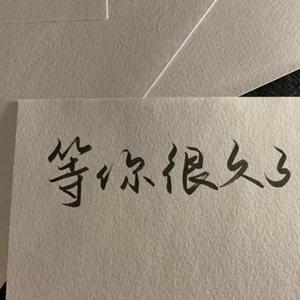 等你很久了